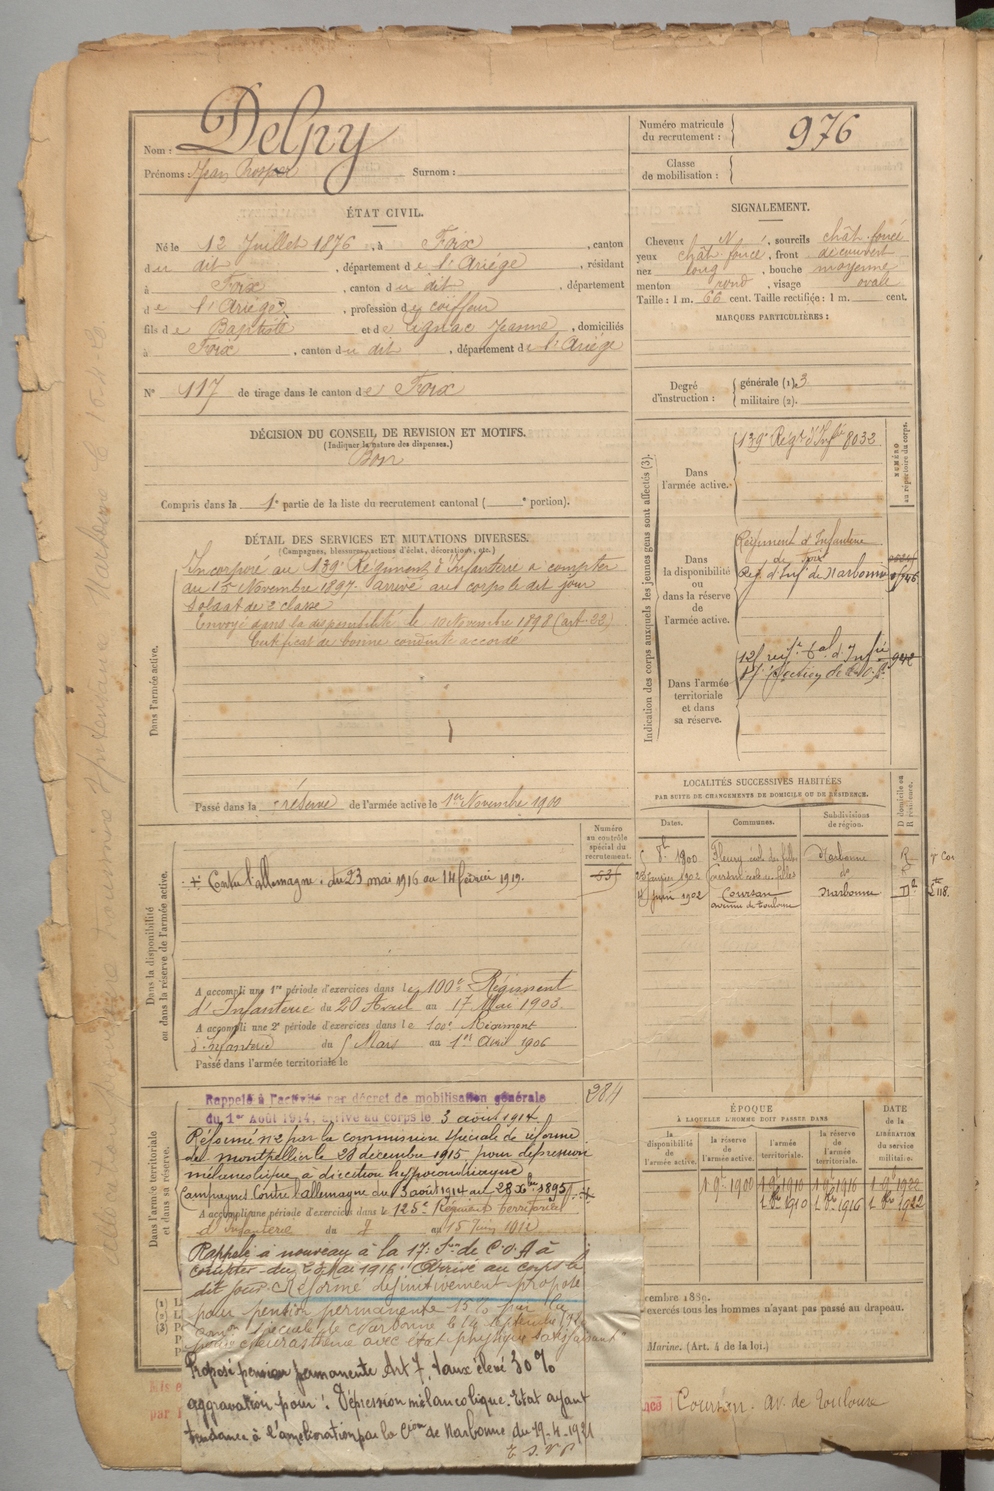 Nom : Delpy
Prénoms : Jean Prosper Surnom :
Numéro matricule du recrutement : 976
Classe de mobilisation :
ÉTAT CIVIL.
Né le 12 Juillet 1876, à Foix, canton
du dit, département de l'Ariége, résidant
à Foix, canton du dit, département
de l'Ariége, profession de coiffeur
fils de Baptiste et de Lignac Jeanne, domiciliés
à Foix, canton du dit, département de l'Ariége
N° 117 de tirage dans le canton de Foix
SIGNALEMENT.
Cheveux N, sourcils chât. foncé
yeux chât. foncé, front découvert
nez long, bouche moyenne
menton rond, visage ovale
Taille : 1 m. 66 cent. Taille rectifiée : 1 m. cent.
MARQUES PARTICULIÈRES :
Degré d'instruction : générale (1). 3
militaire (2).
DÉCISION DU CONSEIL DE REVISION ET MOTIFS.
(Indiquer la nature des dispenses.)
Bon
Compris dans la 1e partie de la liste du recrutement cantonal ( e portion).
DÉTAIL DES SERVICES ET MUTATIONS DIVERSES.
(Campagnes, blessures, actions d'éclat, décorations, etc.)
Dans l'armée active.
Incorporé au 139e Régiment d'Infanterie à compter
du 15 Novembre 1897. arrivé au corps le dit jour
soldat de 2e classe
Envoyé dans la disponibilité le 10 Novembre 1898 (art. 22)
Certificat de bonne conduite accordé
Passé dans la réserve de l'armée active le 1er Novembre 1900
Indication des corps auxquels les jeunes gens sont affectés (3).
NUMÉRO au répertoire du corps.
Dans l'armée active.
139e Régt d'Infie 8032
Dans la disponibilité ou dans la réserve de l'armée active.
Régiment d'Infanterie
de Foix
Rég. d'Infie de Narbonne
Dans l'armée territoriale et dans sa réserve.
942
LOCALITÉS SUCCESSIVES HABITÉES
PAR SUITE DE CHANGEMENTS DE DOMICILE OU DE RÉSIDENCE.
Dates. Communes. Subdivisions de région. D domicile ou R résidence.
1900 Fleury école des filles Narbonne R
1902 Coursan école des filles do
1902 Coursan avenue de Toulouse Narbonne D
Dans la disponibilité ou dans la réserve de l'armée active.
Numéro au contrôle spécial du recrutement.
Contre l'allemagne. du 23 mai 1916 au 14 février 1919.
A accompli une 1re période d'exercices dans le 100e Régiment
d'Infanterie du 20 Avril au 17 Mai 1903.
A accompli une 2e période d'exercices dans le 100e Régiment
d'Infanterie du 5 Mars au 1er Avril 1906
Passé dans l'armée territoriale le
Dans l'armée territoriale et dans sa réserve.
284
Rappelé à l'activité par décret de mobilisation générale
du 1er Août 1914, arrivé au corps le 3 août 1914
Réformé n° 2 par la commission spéciale de réforme
de montpellier le 28 décembre 1915 pour dépression
mélancolique à direction hypocondriaque
Campagnes Contre l'allemagne du 3 août 1914 au 28 Xbre 1895
A accompli une période d'exercices dans le 125e Régiment territorial
d'Infanterie du 7 au 15 Juin 1911
ÉPOQUE
À LAQUELLE L'HOMME DOIT PASSER DANS
la disponibilité de l'armée active. la réserve de l'armée active. l'armée territoriale. la réserve de l'armée territoriale.
DATE de la LIBÉRATION du service militaire.
1 9bre 1900 1 9bre 1910 1 9bre 1916 1 9bre 1922
1 Xbre 1910 1 Xbre 1916 1 Xbre 1922
Rappelé à nouveau à la 17e Son de C.O.A à
compter du 23 Mai 1916. Arrivé au corps le
dit jour. Réformé définitivement proposé
pour pension permanente 15% par la
Comon spéciale de Narbonne le 19 septembre
pour neurasthénie avec état physique satisfaisant
Proposé pension permanente Art 7, taux élevé 30%
aggravation pour : Dépression mélancolique. Etat ayant
tendance à l'amélioration par la Cion de Narbonne du 19-4-1921
T.S.V.P
cembre 1889.
exercés tous les hommes n'ayant pas passé au drapeau.
Marine. (Art. 4 de la loi.)
Coursan. av. de Toulouse